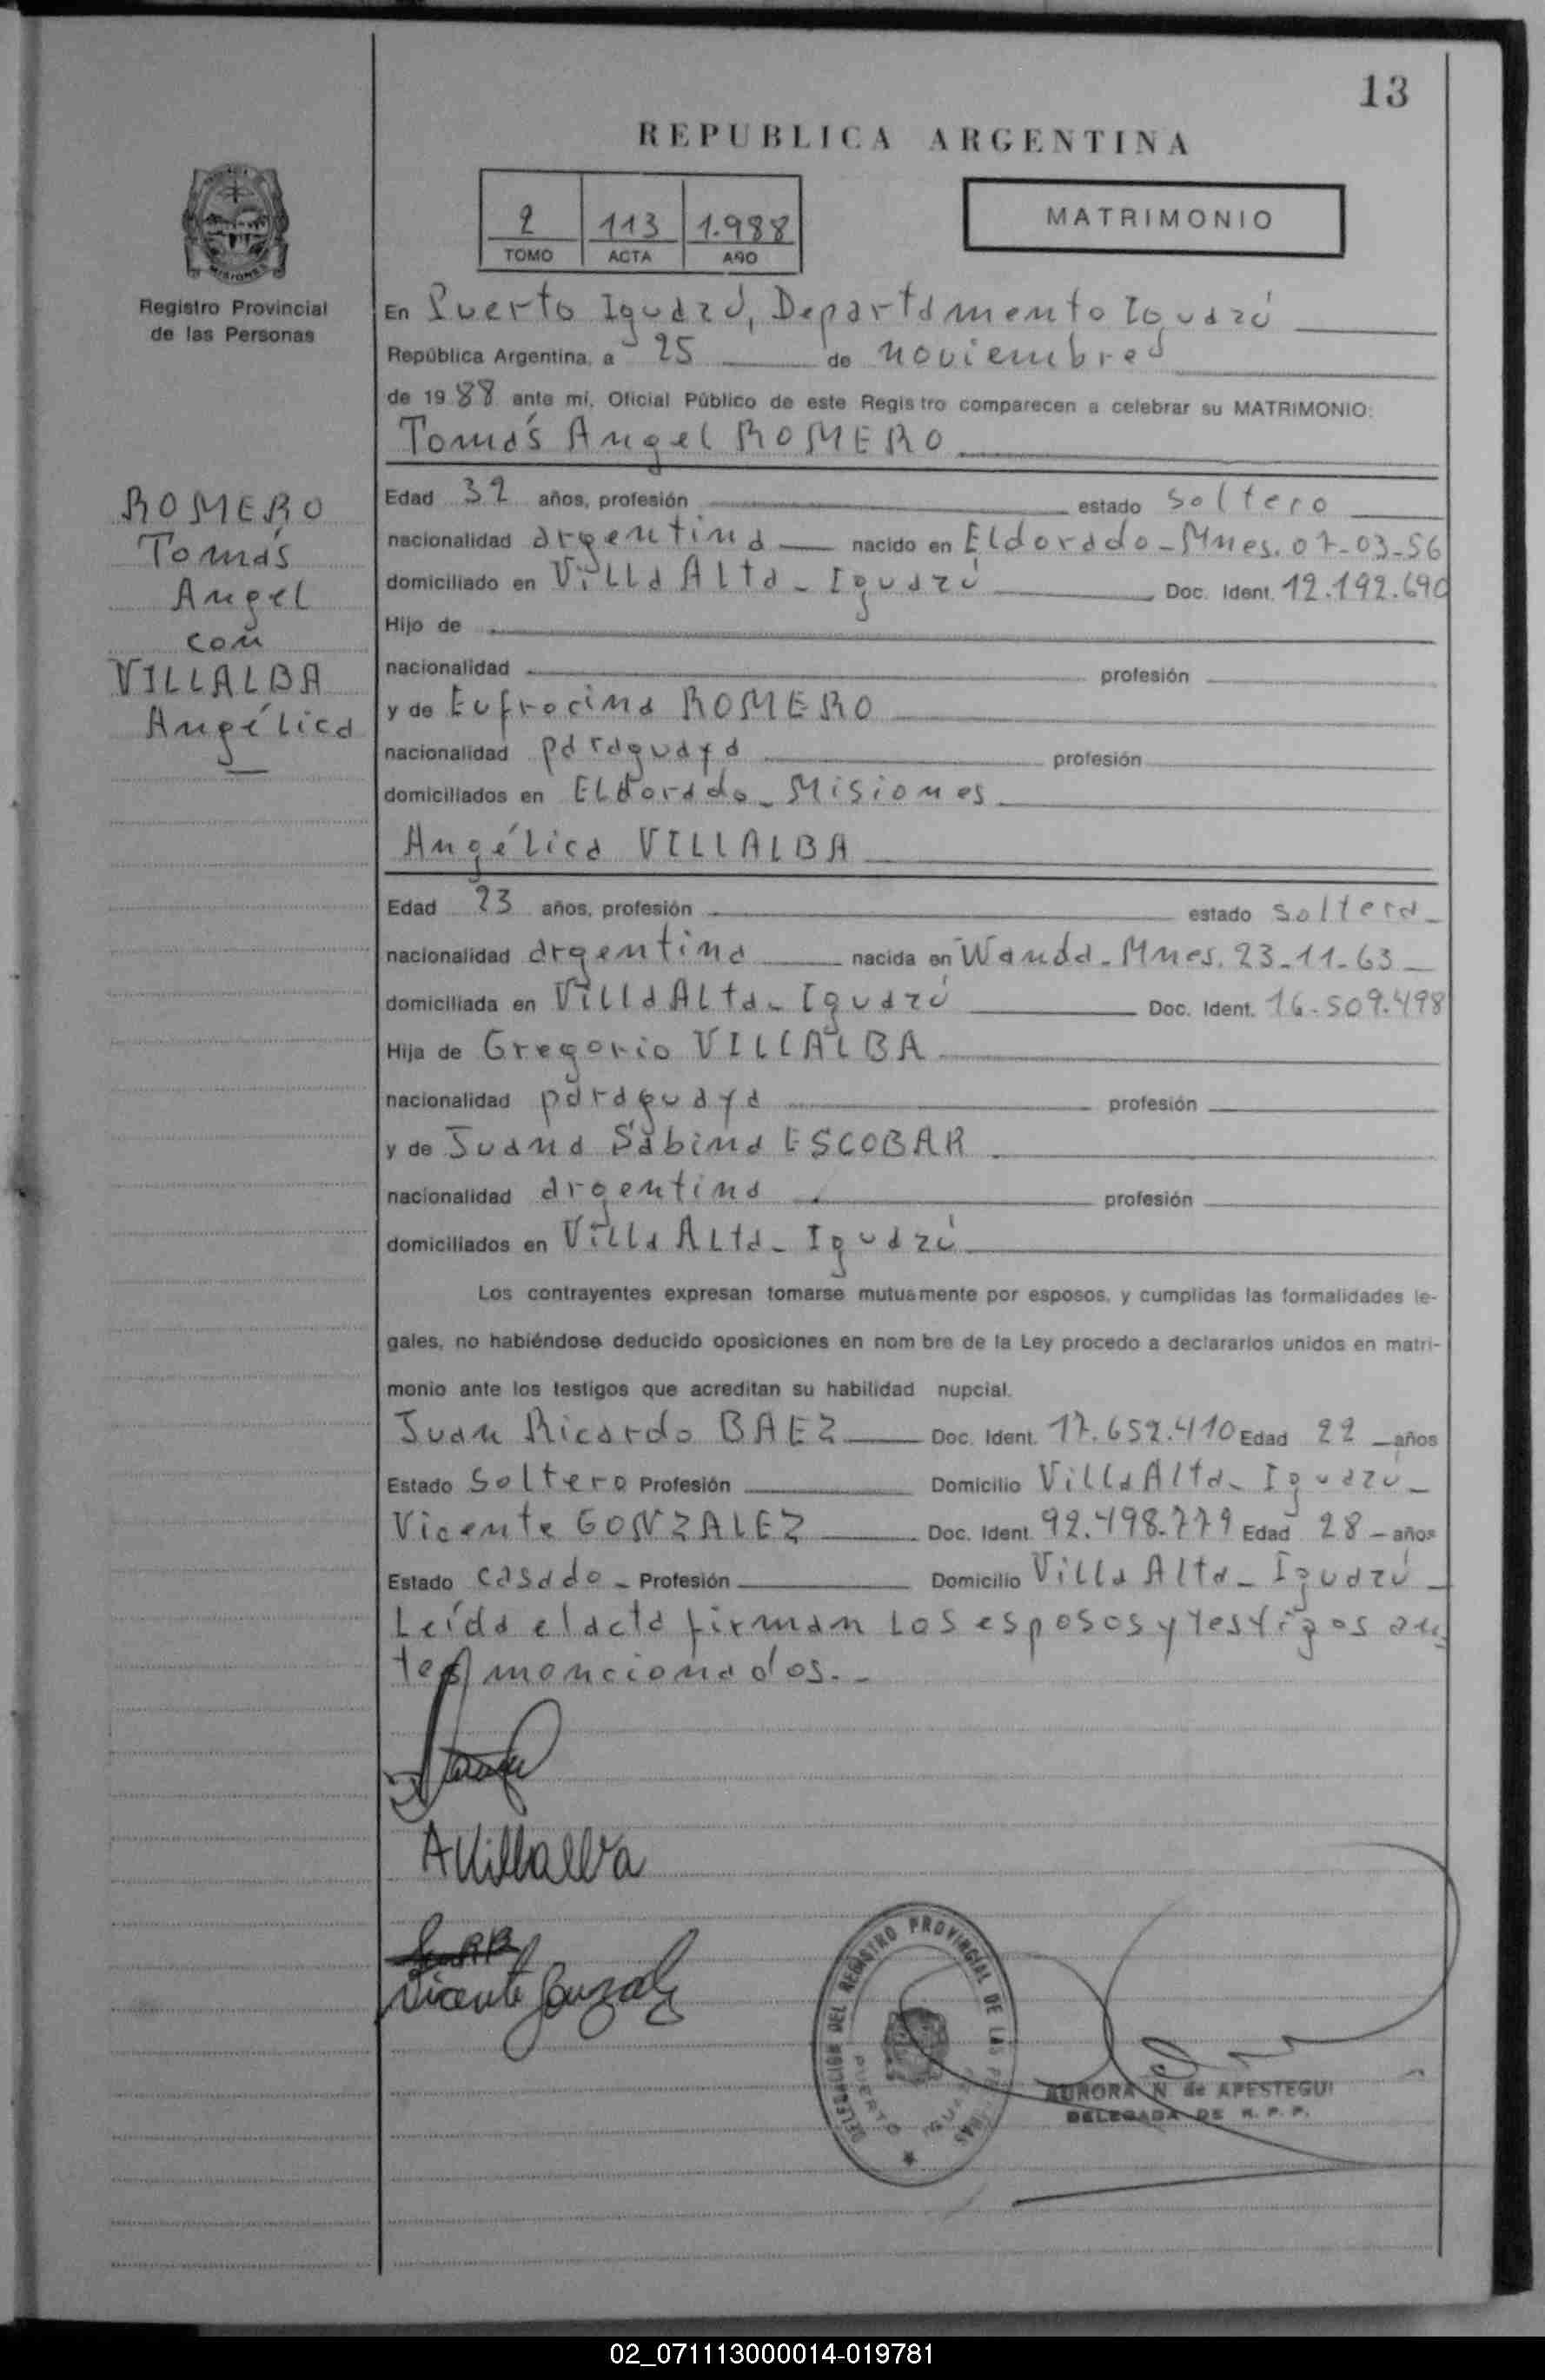 13
REPUBLICA ARGENTINA
2 113 1.988
TOMO ACTA AÑO
MATRIMONIO
MISIONES
Registro Provincial
de las Personas
En Puerto Iguazú, Departamento Iguazú
República Argentina, a 25 de noviembre
de 1988 ante mí, Oficial Público de este Registro comparecen a celebrar su MATRIMONIO:
Tomás Angel ROMERO
ROMERO
Tomás
Angel
con
VILLALBA
Angélica
Edad 32 años, profesión estado soltero
nacionalidad argentina nacido en Eldorado-Mnes. 07-03-56
domiciliado en Villa Alta - Iguazú Doc. Ident. 12.192.690
Hijo de
nacionalidad profesión
y de Eufrocina ROMERO
nacionalidad paraguaya profesión
domiciliados en Eldorado - Misiones
Angélica VILLALBA
Edad 23 años, profesión estado soltera
nacionalidad argentina nacida en Wanda - Mnes. 23-11-63
domiciliada en Villa Alta - Iguazú Doc. Ident. 16.509.498
Hija de Gregorio VILLALBA
nacionalidad paraguaya profesión
y de Juana Sabina ESCOBAR
nacionalidad argentina profesión
domiciliados en Villa Alta - Iguazú
Los contrayentes expresan tomarse mutuamente por esposos, y cumplidas las formalidades le-
gales, no habiéndose deducido oposiciones en nombre de la Ley procedo a declararlos unidos en matri-
monio ante los testigos que acreditan su habilidad nupcial.
Juan Ricardo BAEZ Doc. Ident. 17.652.410 Edad 22 años
Estado soltero Profesión Domicilio Villa Alta - Iguazú
Vicente GONZALEZ Doc. Ident. 92.498.779 Edad 28 años
Estado casado - Profesión Domicilio Villa Alta - Iguazú
Leída el acta firman los esposos y testigos an
tes moncionados.-
AVillalva
Vicente Gonzalez
DELEGACION DEL REGISTRO PROVINCIAL DE LAS PERSONAS
PUERTO
AURORA N de APESTEGUI
DELEGADA DE R. P. P.
02_071113000014-019781